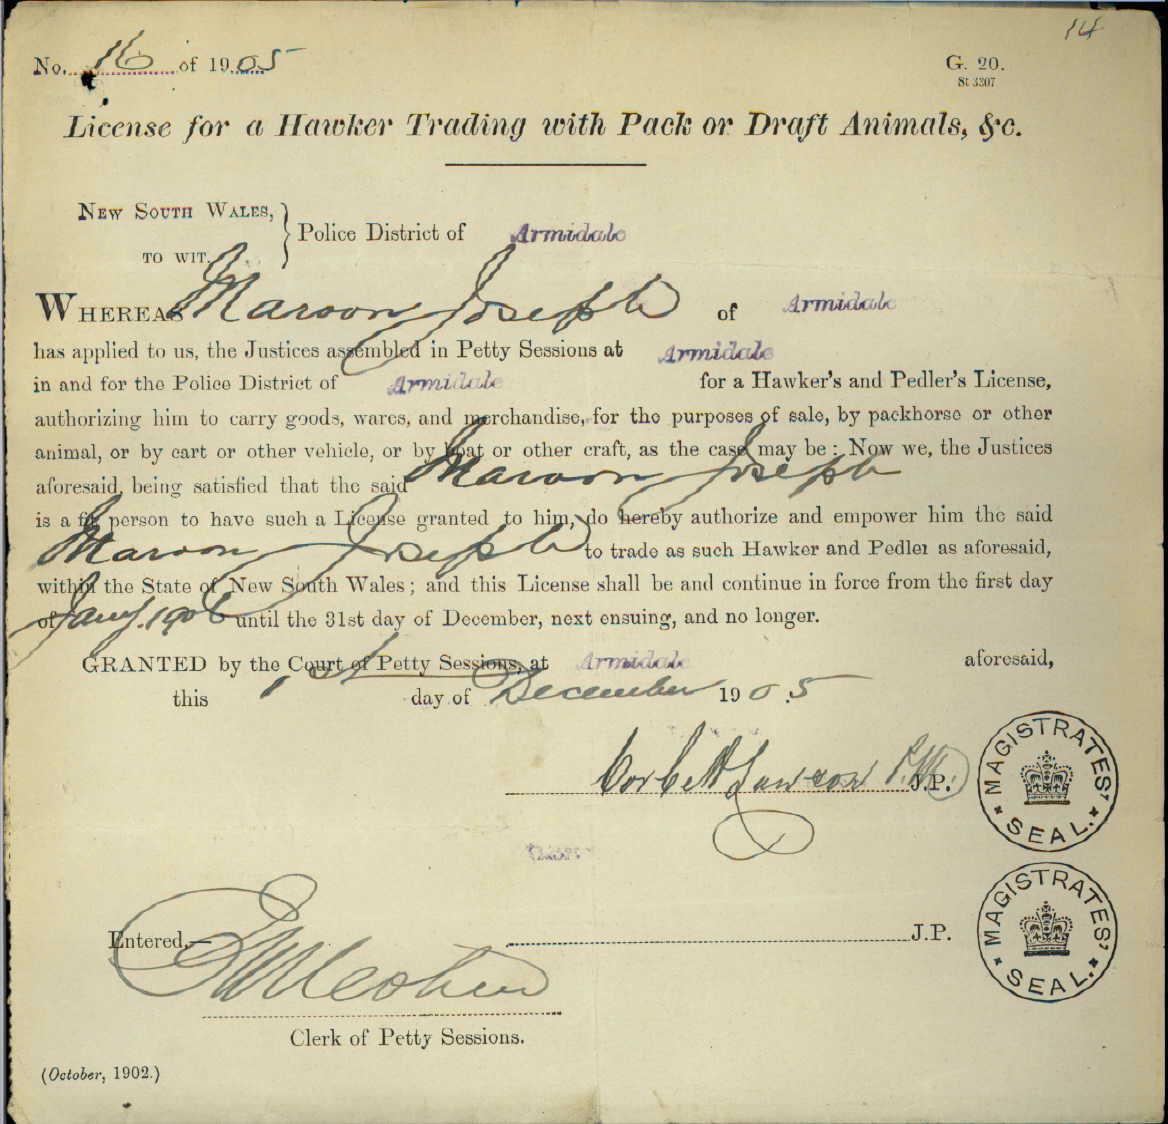 14
No. 16 of 1905
G. 20.
St 3207
License for a Hawker Trading with Pack or Draft Animals, &c.
NEW SOUTH WALES,
TO WIT.
Police District of Armidale
WHEREAS Maroon Joseph of Armidale
has applied to us, the Justices assembled in Petty Sessions at Armidale
in and for the Police District of Armidale for a Hawker's and Pedler's License,
authorizing him to carry goods, wares, and merchandise, for the purposes of sale, by packhorse or other
animal, or by cart or other vehicle, or by boat or other craft, as the case may be: Now we, the Justices
aforesaid, being satisfied that the said Maroon Joseph
is a fit person to have such a License granted to him, do hereby authorize and empower him the said
Maroon Joseph to trade as such Hawker and Pedler as aforesaid,
within the State of New South Wales; and this License shall be and continue in force from the first day
of Jany. 1906 until the 31st day of December, next ensuing, and no longer.
GRANTED by the Court of Petty Sessions, at Armidale aforesaid,
this 1st day of December 1905
Corbett Lawson P.M. J.P.
MAGISTRATES' SEAL.
Entered,—
J.P.
MAGISTRATES' SEAL.
Clerk of Petty Sessions.
(October, 1902.)